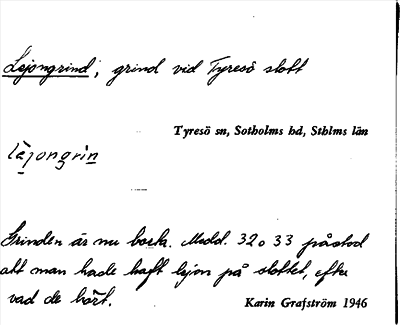 Lejongrind; grind vid Tyresö slott
Tyresö sn, Sotholms hd, Sthlms län
lèjongrìn
Grinden är nu borta. Medd. 32 o 33 påstod
att man hade haft lejon på slottet, efter
vad de hört.
Karin Grafström 1946